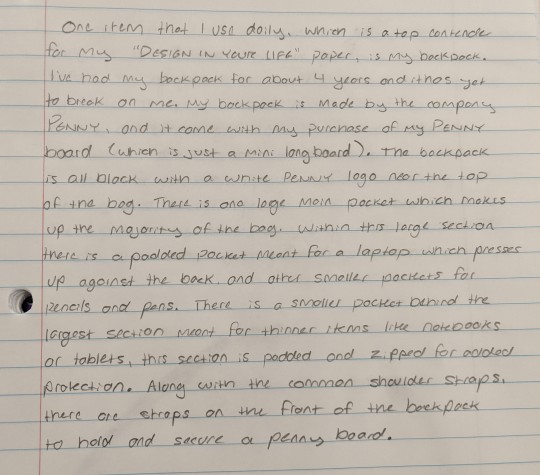 One item that I use daily, which is a top contender
for my "DESIGN IN YOURE LIFE" paper, is my backpack.
I've had my backpack for about 4 years and it has yet
to break on me. My backpack is made by the company
PENNY, and it came with my purchase of my PENNY
board (which is just a mini longboard). The backpack
is all black with a white PENNY logo near the top
of the bag. There is one large main pocket which makes
up the majority of the bag. Within this large section
there is a padded pocket meant for a laptop which presses
up against the back, and other smaller pockets for
pencils and pens. There is a smaller pocket behind the
largest section meant for thinner items like notebooks
or tablets, this section is padded and zipped for added
protection. Along with the common shoulder straps,
there are straps on the front of the backpack
to hold and secure a penny board.